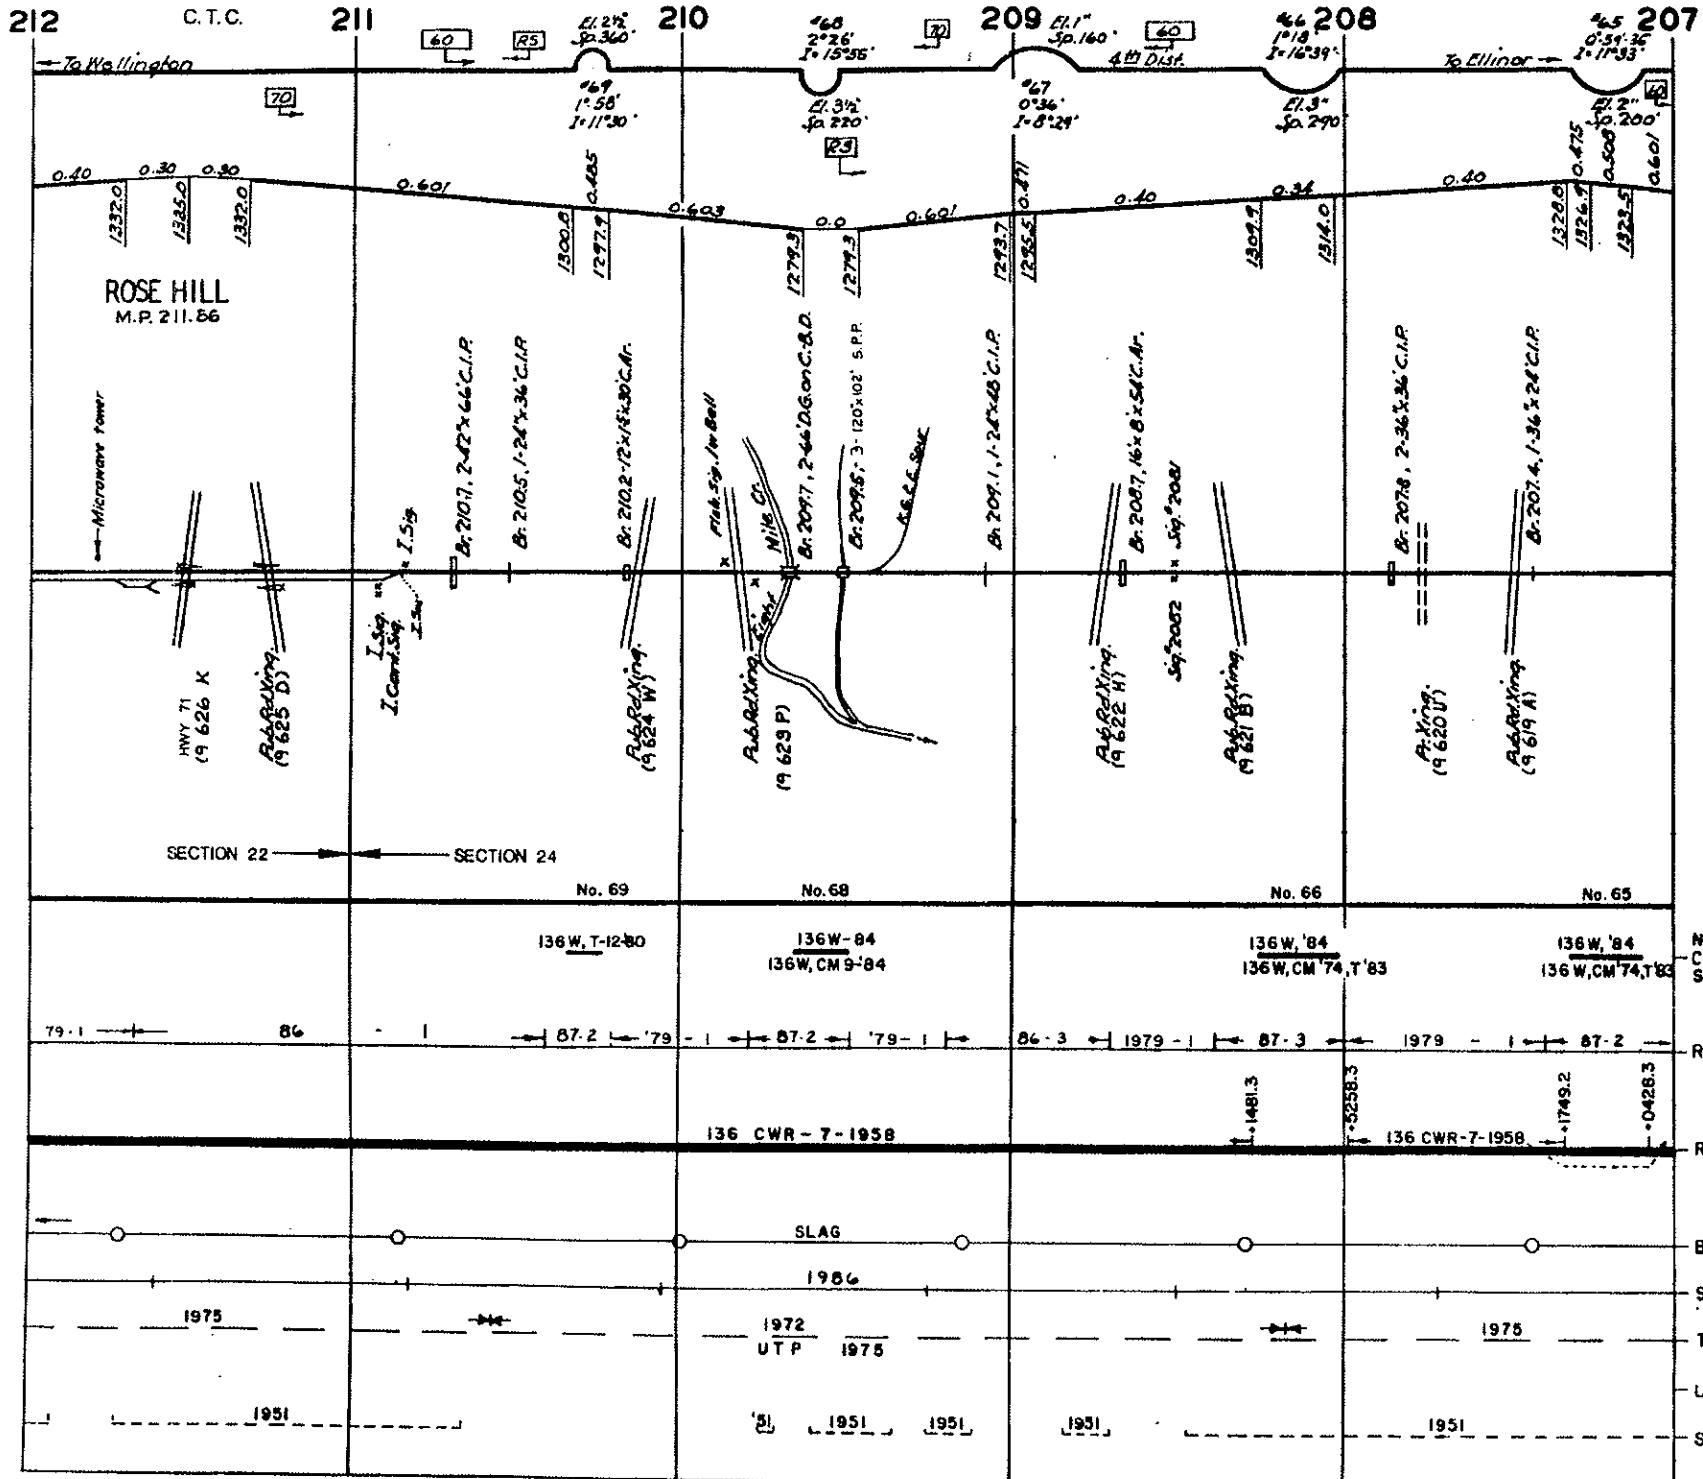 212 C.T.C. 211 210 209 208 207
El. 2½" Sp. 360' #68 2°26' I=15°56' 70 El. 1" Sp. 160' 60 #66 1°18' I=16°39' #65 0°59'36" I=11°33'
60 R5
To Wellington 4th Dist. To Ellinor
70 #69 1°58' I=11°30' El. 3½" Sp. 220' #67 0°36' I=8°29' El. 3" Sp. 290' El. 2" Sp. 200'
R3
0.40 0.30 0.30 0.601 0.485 0.603 0.0 0.601 0.471 0.40 0.34 0.40 0.475 0.508 0.601
1332.0 1335.0 1332.0 1300.8 1297.9 1279.3 1279.3 1293.7 1295.5 1309.9 1314.0 1328.8 1326.9 1323.5
ROSE HILL
M.P. 211.86
Microwave tower
Br. 210.7, 2-42"x66' C.I.P.
Br. 210.5, 1-24"x36' C.I.P.
Br. 210.2-12'x14'x30' C.Ar.
Flsh. Sig. 1w Bell
Eight Mile Cr.
Br. 209.7, 2-66' D.G. on C.B.D.
Br. 209.5, 3-120"x102' S.P.P.
K.G.&E. Spur
Br. 209.1, 1-24"x48' C.I.P.
Br. 208.7, 16'x8'x54' C.Ar.
Sig. 2081
Br. 207.8, 2-36"x36' C.I.P.
Br. 207.4, 1-36"x24' C.I.P.
I. Sig.
I. Sig.
I. Cant. Sig.
Sig. 2082
HWY 71
(9 626 K
Pub. Rd. Xing.
(9 625 D)
Pub. Rd. Xing.
(9 624 W)
Pub. Rd. Xing.
(9 623 P)
Pub. Rd. Xing.
(9 622 H)
Pub. Rd. Xing.
(9 621 B)
Pr. Xing.
(9 620 U)
Pub. Rd. Xing.
(9 619 A)
SECTION 22 SECTION 24
No. 69 No. 68 No. 66 No. 65
136 W, T-12-80 136W-84 136W, '84 136W, '84 N
136W, CM 9-'84 136W, CM '74, T '83 136W, CM '74, T '83 C
S
79-1 86 - 1 87-2 '79 - 1 87-2 '79-1 86-3 1979-1 87-3 1979 - 1 87-2 R
+1481.3 +5258.3 +1749.2 +0428.3
136 CWR-7-1958 136 CWR-7-1958 R
SLAG B
1986 S
1975 1972 1975 T
UTP 1975
U
1951 '51 1951 1951 1951 1951 S